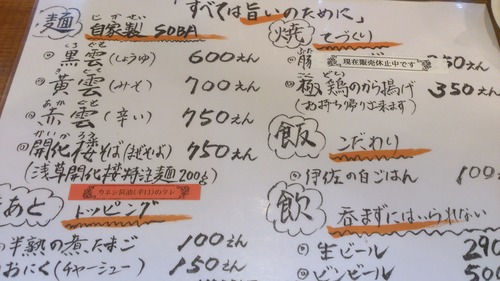 すべては旨いのために」
麺
じかせい
自家製 SOBA
黒雲(しょうゆ) 600えん
黄雲(みそ) 700えん
赤雲(辛い) 750えん
かいかろう
開化楼そば(まぜそば) 750えん
(浅草開化楼特注麺200g)
あと
トッピング
半熟の煮たまご 100えん
おにく(チャーシュー) 150えん
焼
てづくり
豚
現在販売休止中です
50えん
極 鶏のから揚げ 350えん
(お持ち帰り出来ます)
飯
こだわり
伊佐の白ごはん 100
飲
呑まずにはいられない
生ビール 290
ビンビール 500